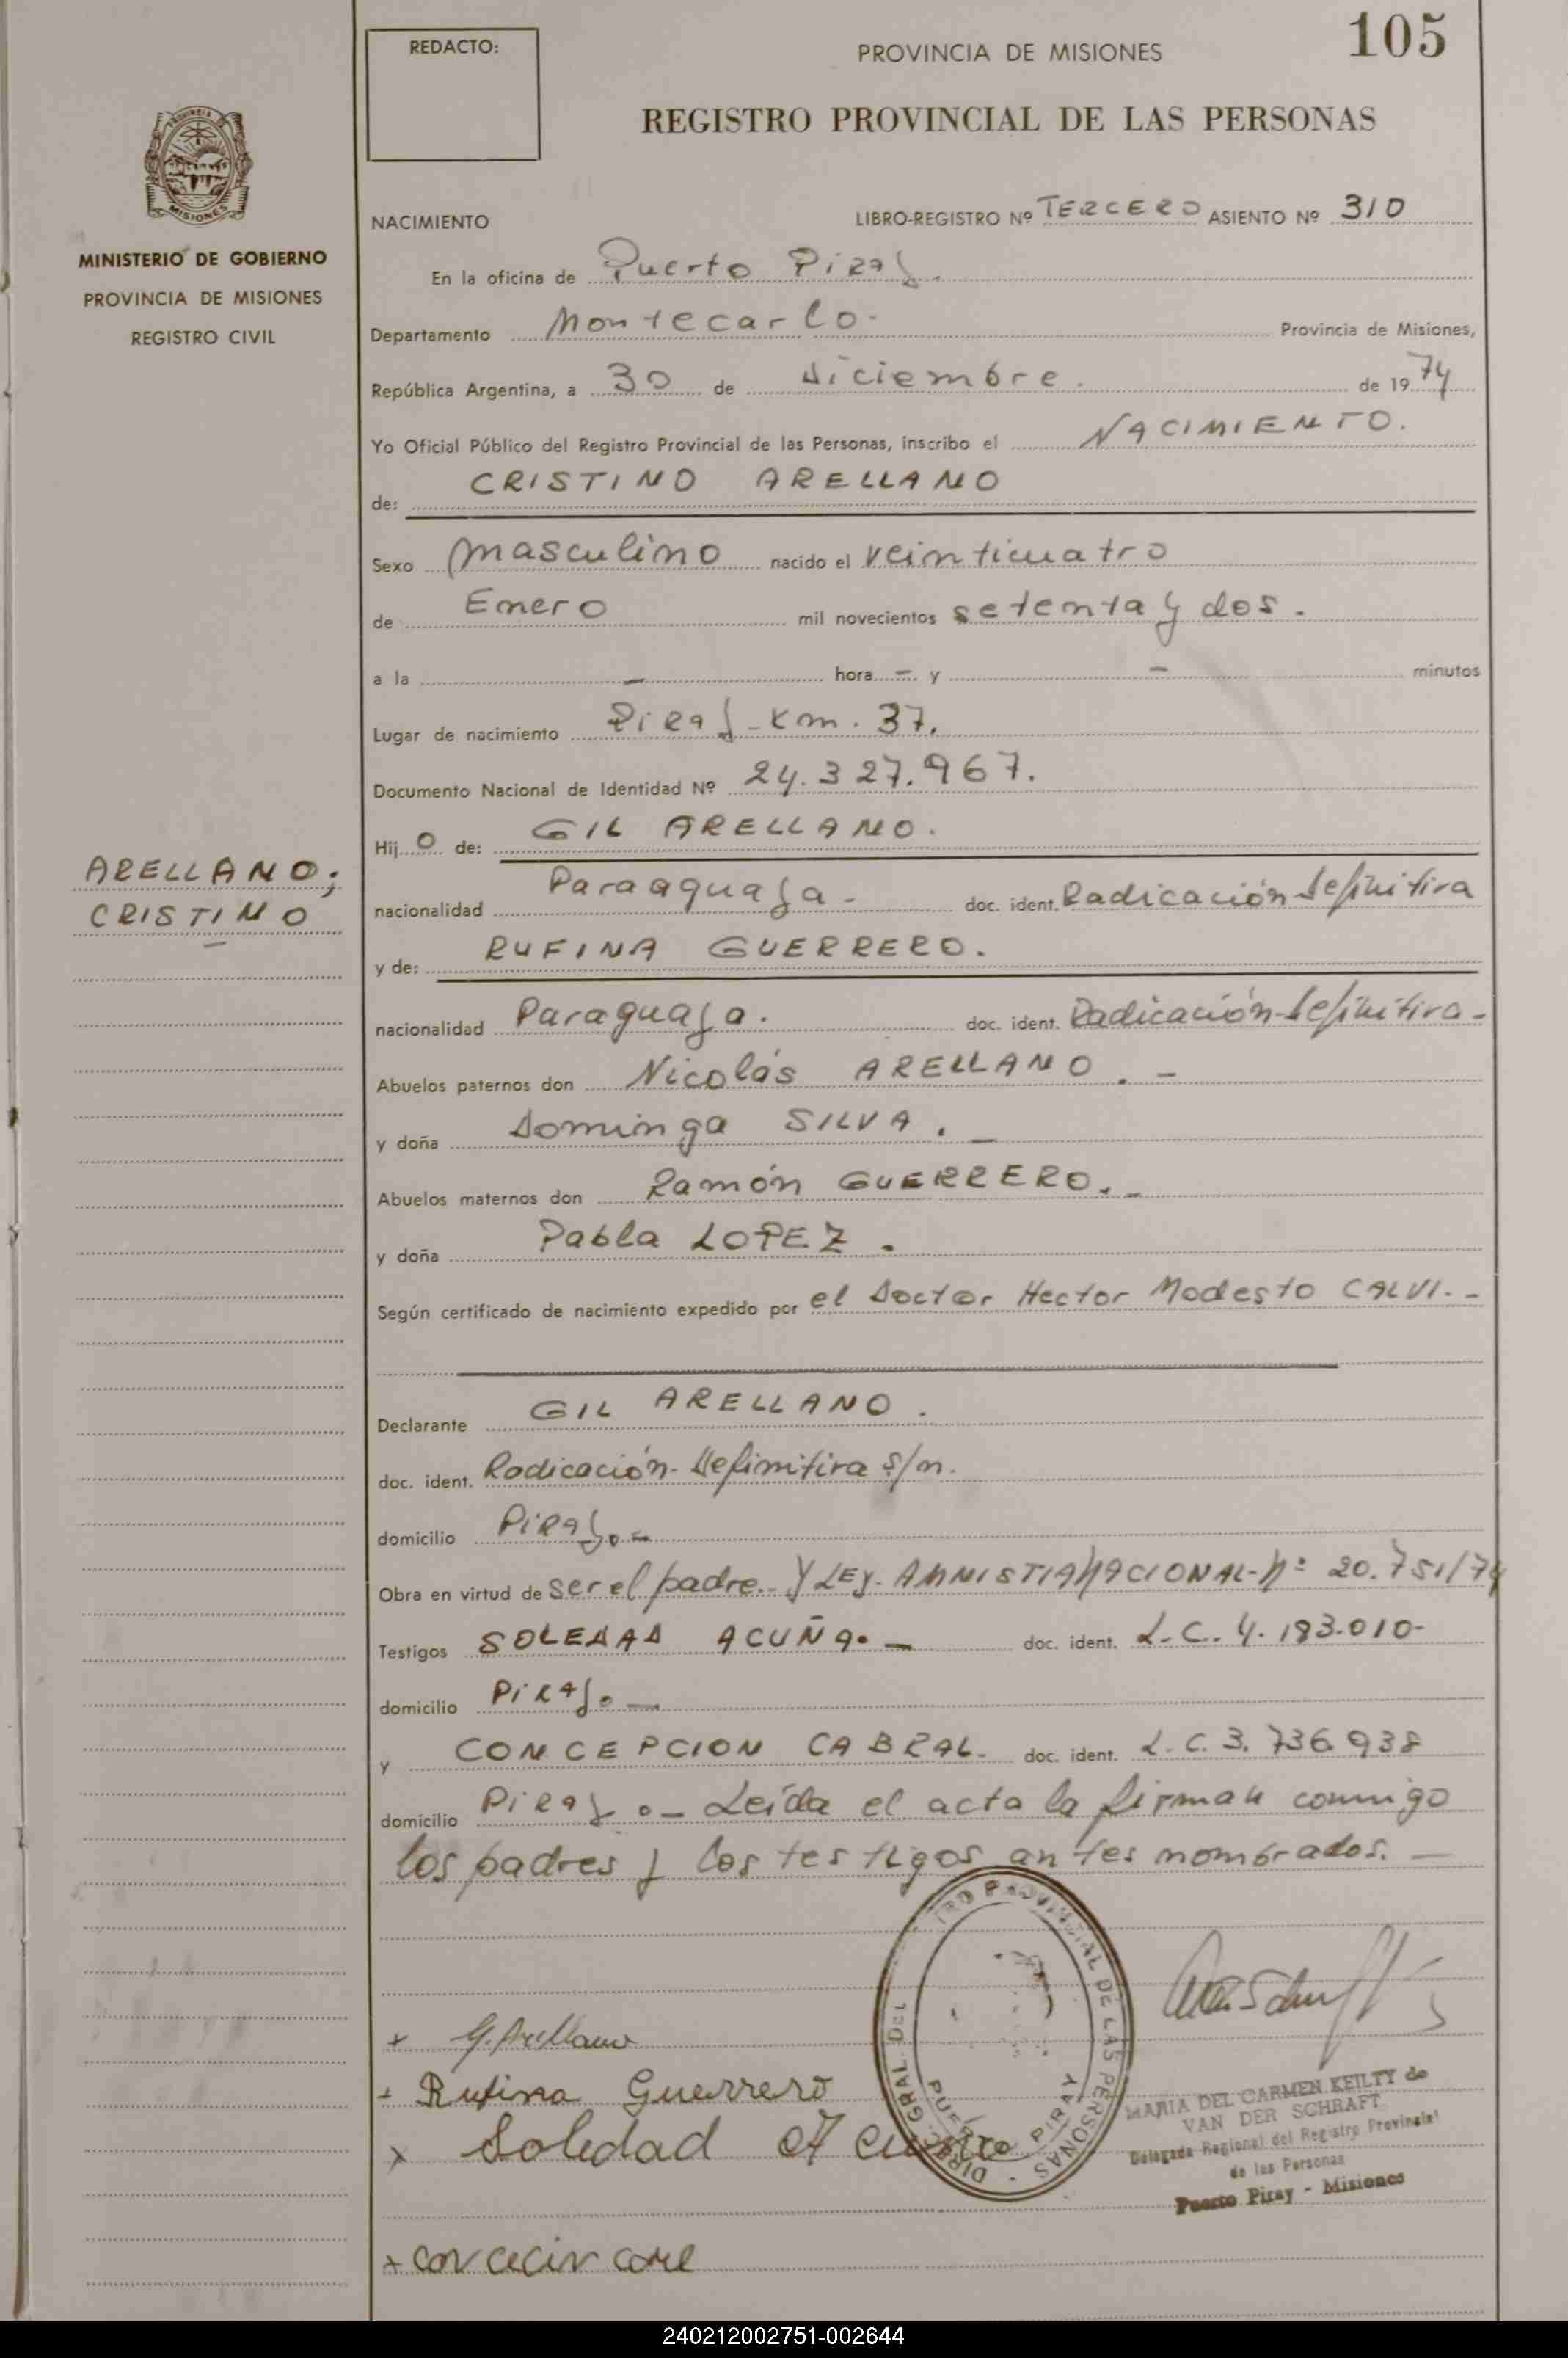 REDACTO:
PROVINCIA DE MISIONES
105
REGISTRO PROVINCIAL DE LAS PERSONAS
MISIONES
MINISTERIO DE GOBIERNO
PROVINCIA DE MISIONES
REGISTRO CIVIL
ARELLANO;
CRISTINO
NACIMIENTO LIBRO-REGISTRO Nº TERCERO ASIENTO Nº 310
En la oficina de Puerto Piray.
Departamento Montecarlo- Provincia de Misiones,
República Argentina, a 30 de diciembre. de 1974
Yo Oficial Público del Registro Provincial de las Personas, inscribo el NACIMIENTO.
de: CRISTINO ARELLANO
Sexo masculino nacido el veinticuatro
de Enero mil novecientos setenta y dos.
a la — hora - y - minutos
Lugar de nacimiento Piray - Km. 37.
Documento Nacional de Identidad Nº 24.327.967.
Hijo de: GIL ARELLANO.
nacionalidad Paraaguaya - doc. ident. Radicación definitiva
y de: RUFINA GUERRERO.
nacionalidad Paraguaya. doc. ident. Radicación-definitiva-
Abuelos paternos don Nicolás ARELLANO. -
y doña Dominga SILVA. _
Abuelos maternos don Ramón GUERRERO. -
y doña Pabla LOPEZ.
Según certificado de nacimiento expedido por el Doctor Hector Modesto CALVI. -
Declarante GIL ARELLANO.
doc. ident. Radicación- definitiva s/n.
domicilio Piray.=
Obra en virtud de ser el padre.- Y LEY. AMNISTIA NACIONAL-Nº 20.751/74
Testigos SOLEDAD ACUÑA. — doc. ident. L.C. 4.183.010-
domicilio Piray. —
y CONCEPCION CABRAL- doc. ident. L.C. 3.736.938
domicilio Piray. — Leída el acta la firman conmigo
los padres y los testigos antes nombrados. —
DIREC. GRAL. DEL PROVINCIAL DE LAS PERSONAS
PUERTO PIRAY
+ G. Arellano
+ Rufina Guerrero
x Soledad
MARIA DEL CARMEN KEILTY de
VAN DER SCHRAFT
Delegada Regional del Registro Provincial
de las Personas
Puerto Piray - Misiones
240212002751-002644